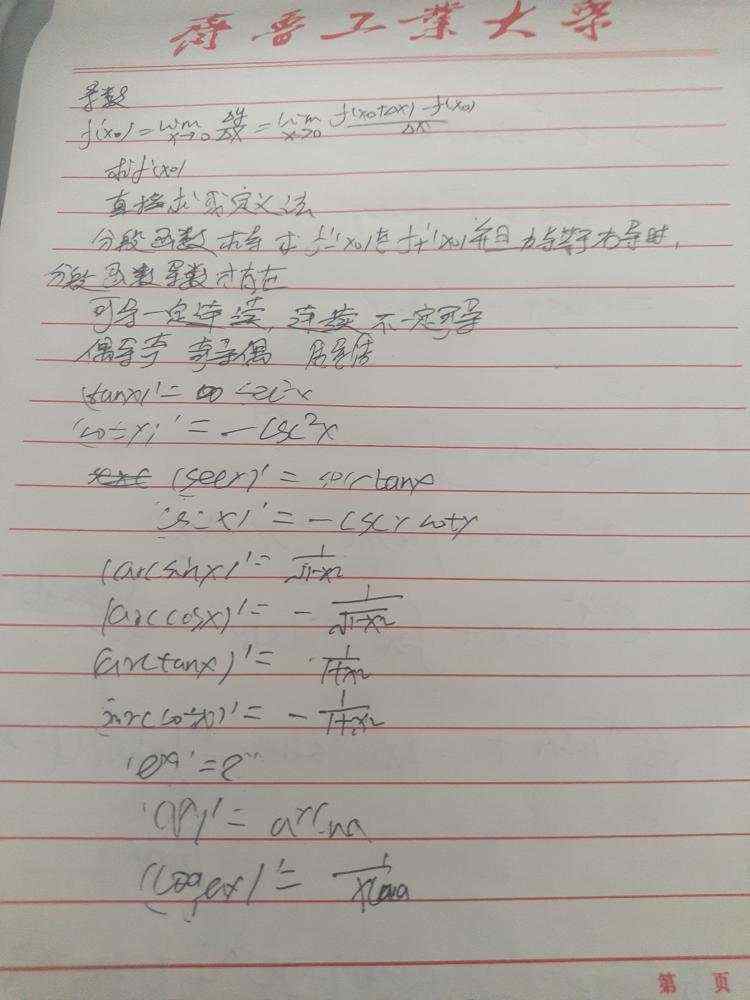 齐鲁工業大学
导数
f'(x₀) = lim x→0 Δy/Δx = lim x→0 f(x₀+Δx)-f(x₀)/Δx
求f'(x₀)
直接求或定义法
分段函数求导 求f₋'(x₀)与f₊'(x₀)并且左导等于右导时,
分段函数导数才存在
可导一定连续, 连续不一定可导
偶导奇 奇导偶 周导周
(tanx)' = sec²x
(cotx)' = -csc²x
(secx)' = secxtanx
(cscx)' = -cscxcotx
(arcsinx)' = 1/√1-x²
(arccosx)' = - 1/√1-x²
(arctanx)' = 1/1+x²
(arccotx)' = - 1/1+x²
(eˣ)' = eˣ
(aˣ)' = aˣlna
(logₐx)' = 1/xlna
第 页